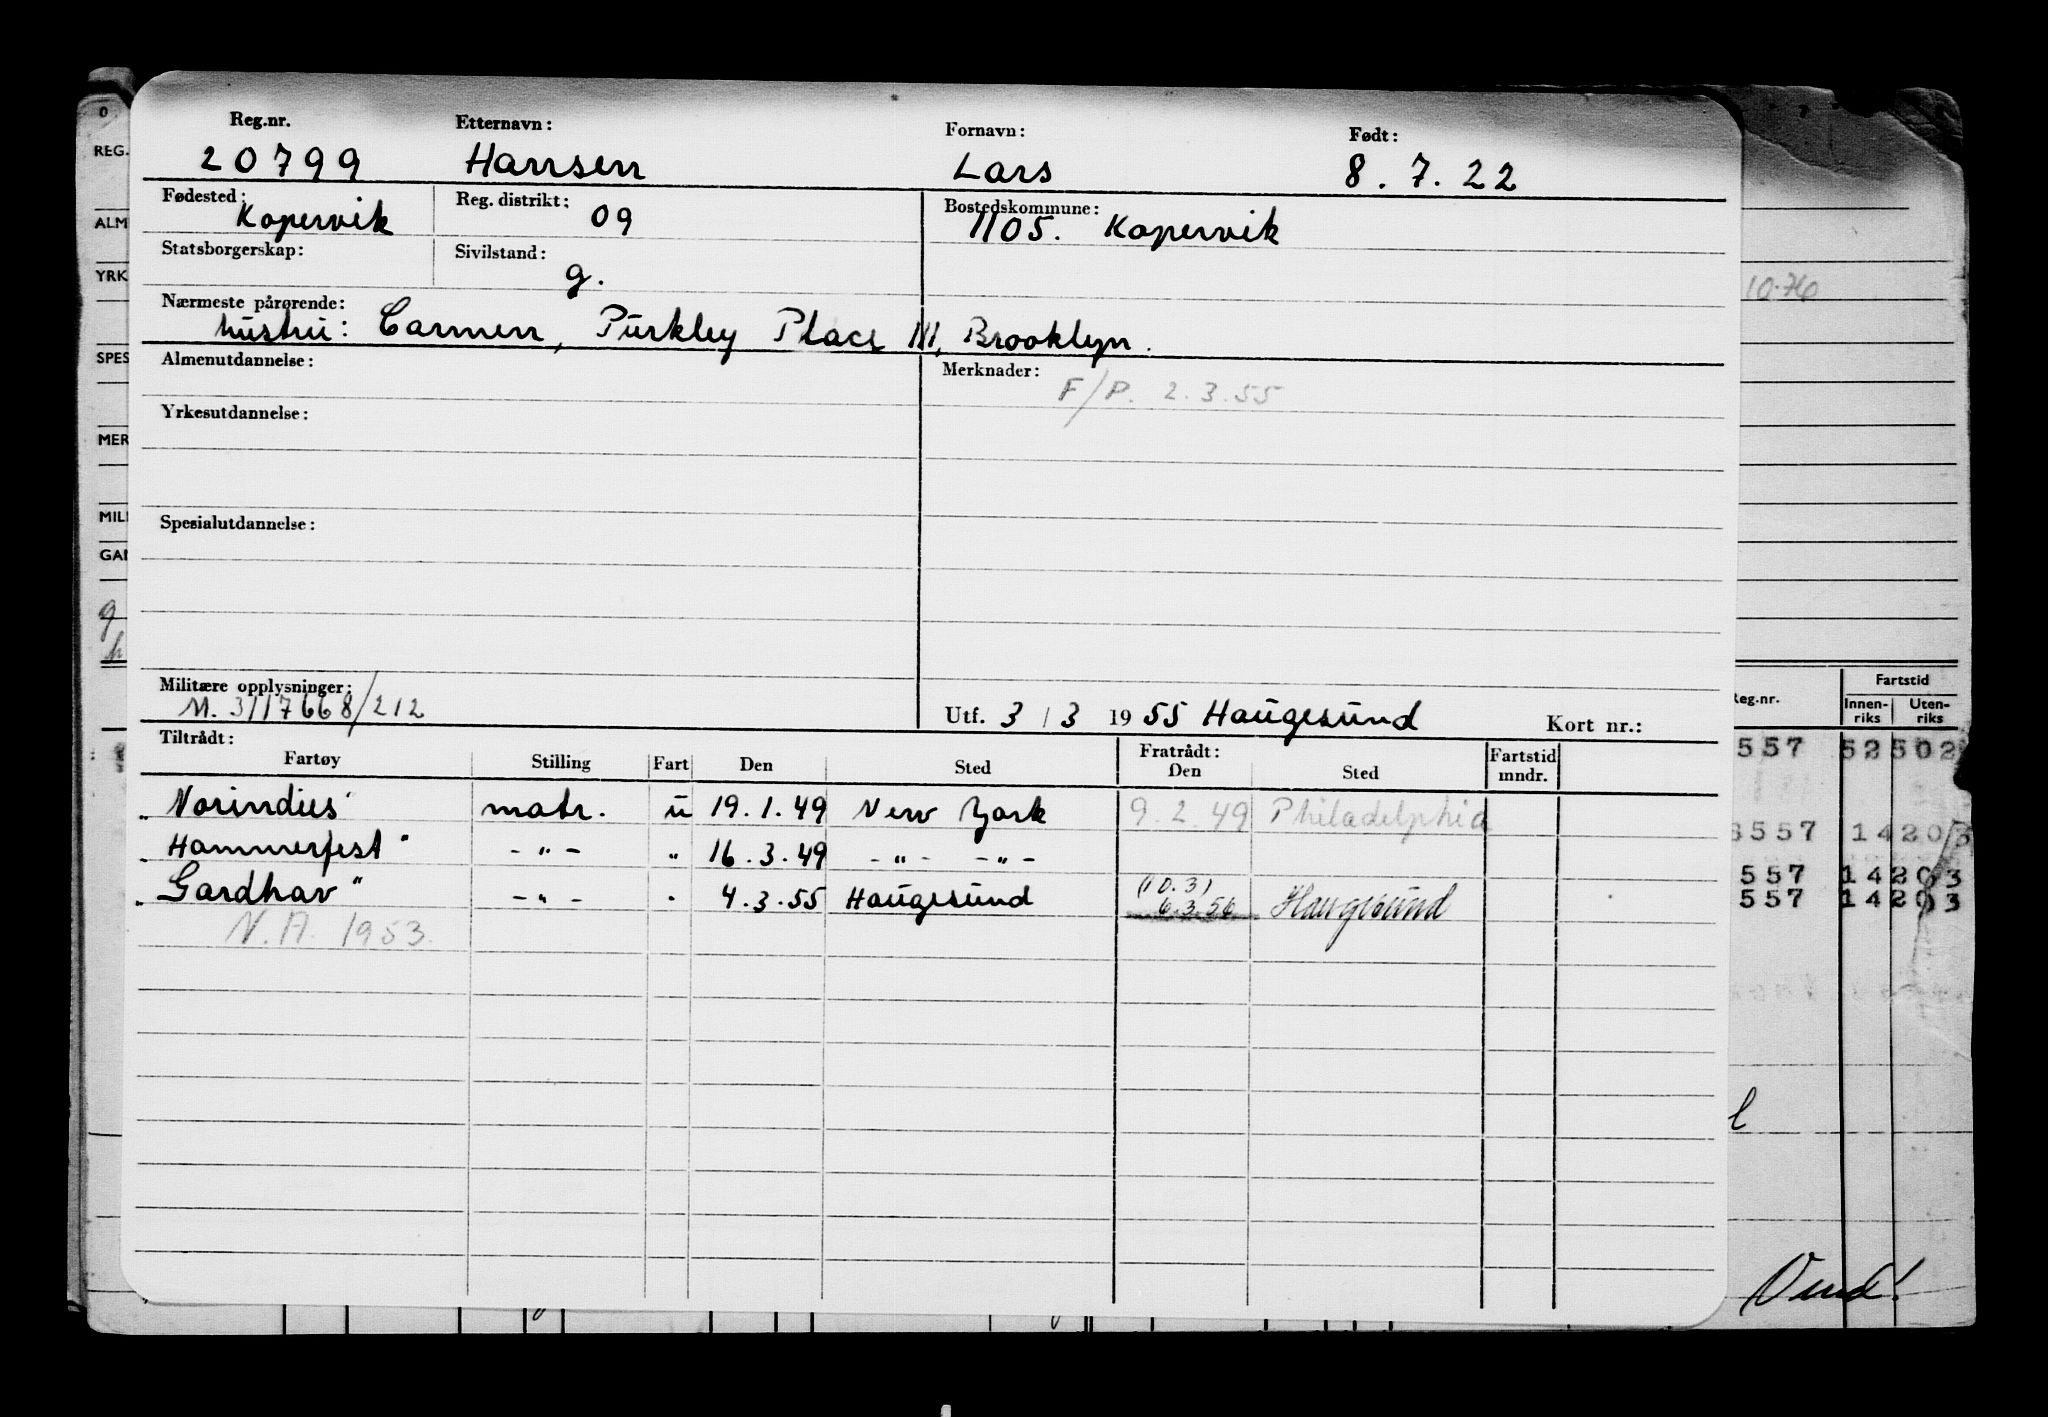 Reg.nr. Etternavn: Fornavn: Født:
20799 Hansen Lars 8.7.22
Fødested: Kopervik Reg. distrikt: 09 Bostedskommune: 1105. Kopervik
Statsborgerskap: Sivilstand: g.
Nærmeste pårørende:
hustru: Carmen, Purkley Place 111, Brooklyn.
Almenutdannelse: Merknader: F/P. 2.3.55
Yrkesutdannelse:
Spesialutdannelse:
Militære opplysninger:
M. 3117668/212 Utf. 3/3 1955 Haugesund Kort nr.:
Tiltrådt: Fratrådt: Fartstid
Fartøy Stilling Fart Den Sted Den Sted mndr.
"Norindies" matr. u 19.1.49 New York 9.2.49 Philadelphia
"Hammerfest" -"- " 16.3.49 -"- -"-
"Gardhav" -"- " 4.3.55 Haugesund (10.3) 6.3.56 Haugesund
N.A. 1953.
O
REG.
ALM
YRK
SPES
MER
MILI
GAN
g
h
10.76
Reg.nr. Fartstid
Innen-riks Uten-riks
557 52 502
8557 14 203
557 14 203
557 14 203
Vend!